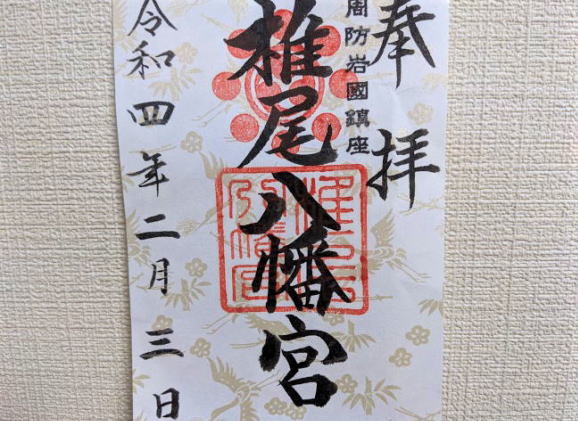 奉拝
周防岩國鎮座
椎尾八幡宮
椎尾八幡宮
令和四年二月三日